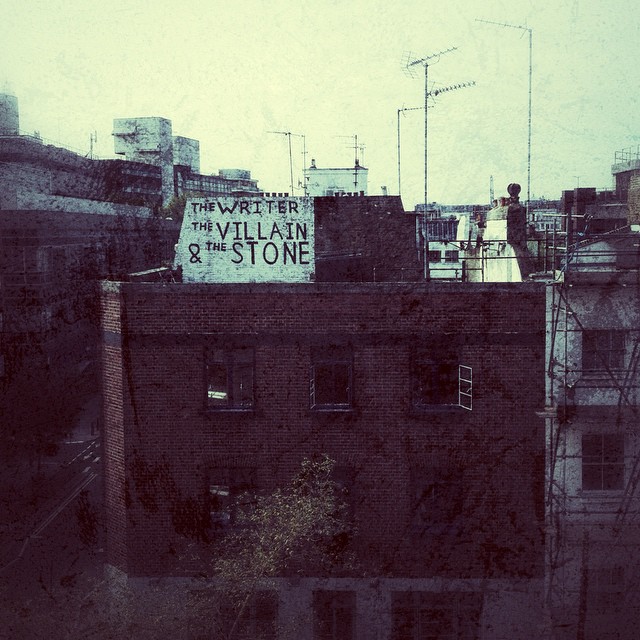 THE WRITER
THE VILLAIN
& THE STONE